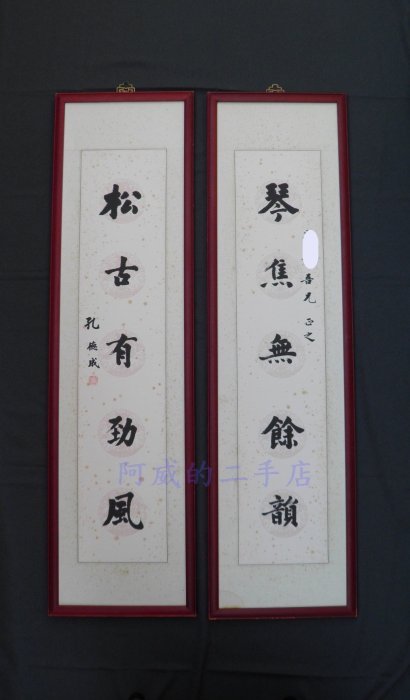 琴焦無餘韻
吾兄 正之
松古有勁風
孔德成
阿威的二手店